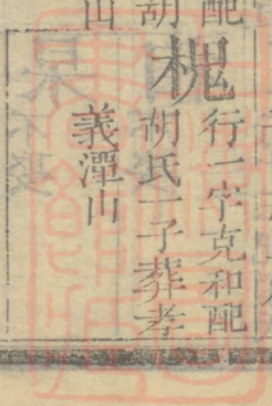 配
胡
山
槐
行一字克和配
胡氏一子葬孝
義潭山